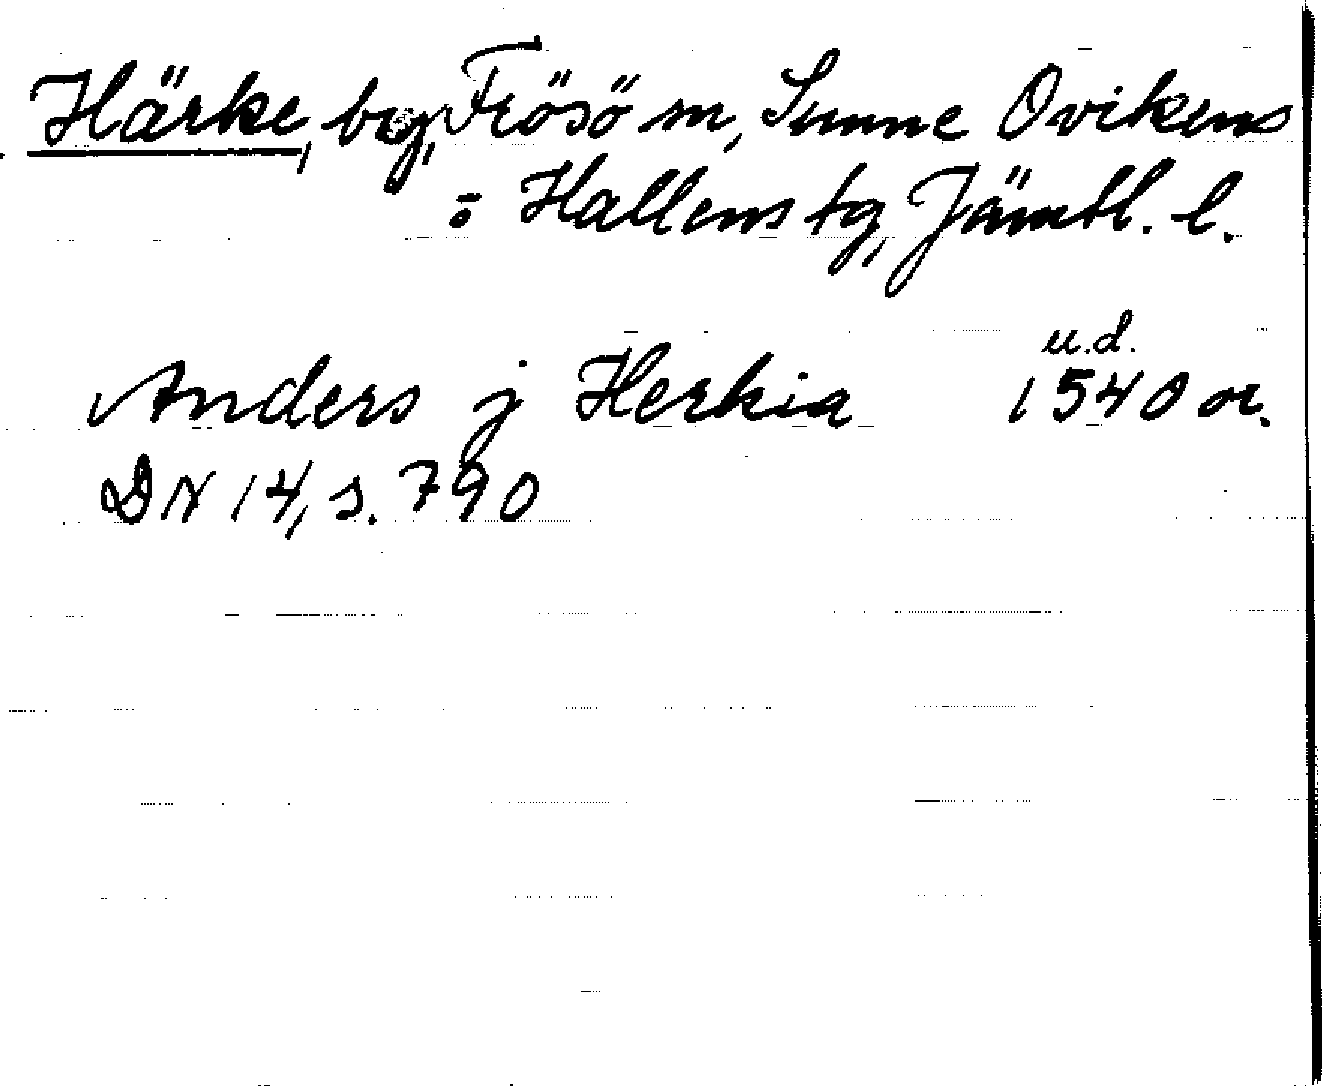 Härke, by, Frösö sn, Sunne Ovikens
o Hallens tg, Jämtl. l.
u.d.
Anders j Herkia 1540 or.
DN 14, s. 790